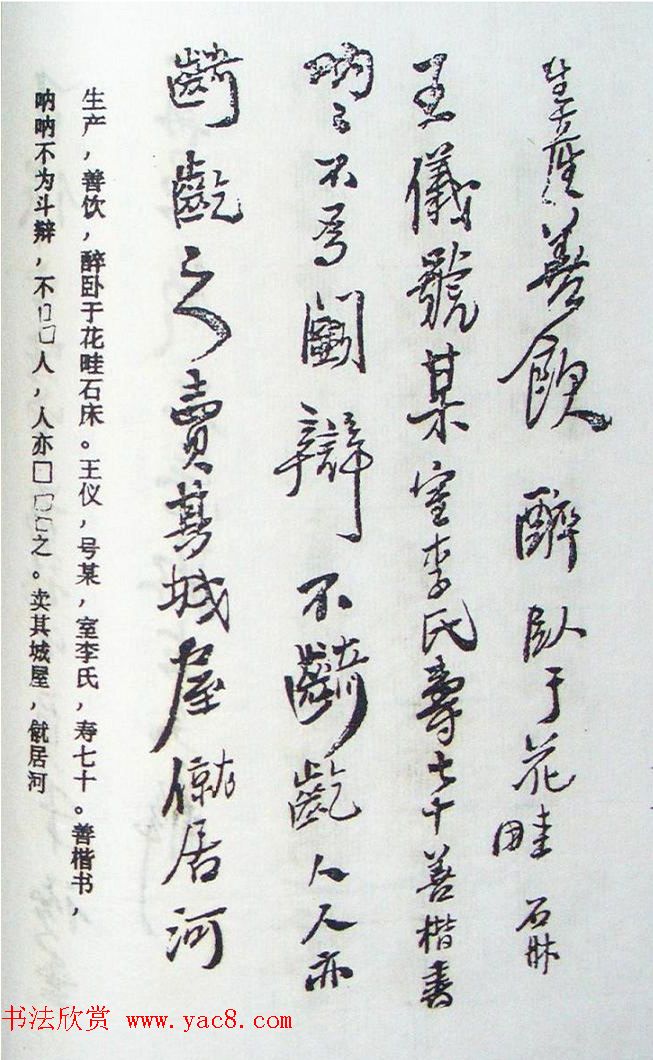 生產善飲醉臥于花畦石牀
王儀號某室李氏壽七十善楷書
呐〻不爲鬭辯不齮齕人人亦
齮齕之賣其城屋僦居河
生产，善饮，醉卧于花畦石床。王仪，号某，室李氏，寿七十。善楷书，
呐呐不为斗辩，不□□人，人亦□□□之。卖其城屋，僦居河
书法欣赏 www.yac8.com